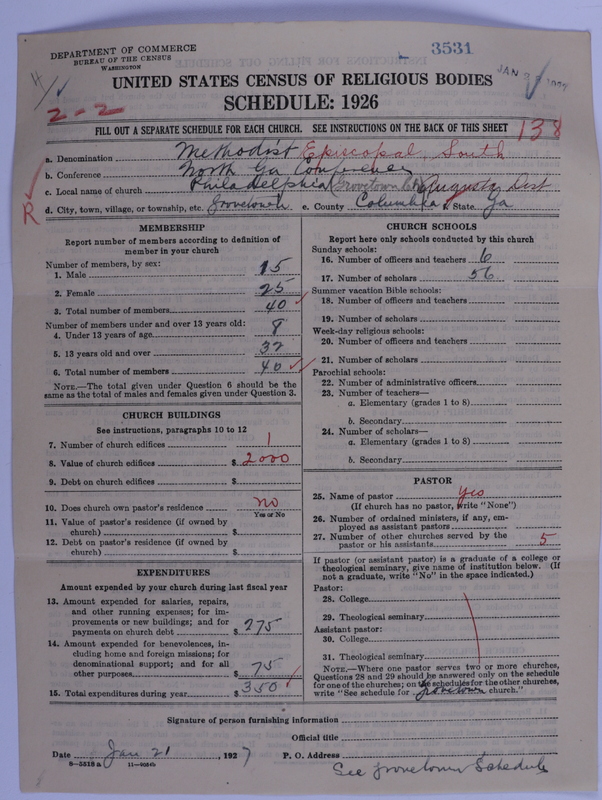 DEPARTMENT OF COMMERCE
BUREAU OF THE CENSUS
WASHINGTON
3531
2-2
UNITED STATES CENSUS OF RELIGIOUS BODIES
SCHEDULE: 1926
FILL OUT A SEPARATE SCHEDULE FOR EACH CHURCH. SEE INSTRUCTIONS ON THE BACK OF THIS SHEET
138
a. Denomination Methodist Episcopal, South
b. Conference North Ga Conference
c. Local name of church Philadelphia (Grovetown Ch) Augusta Dist
d. City, town, village, or township, etc. Grovetown e. County Columbia & State Ga
R
MEMBERSHIP
Report number of members according to definition of
member in your church
Number of members, by sex:
1. Male 15
2. Female 25
3. Total number of members 40
Number of members under and over 13 years old:
4. Under 13 years of age 8
5. 13 years old and over 32
6. Total number of members 40
NOTE.—The total given under Question 6 should be the
same as the total of males and females given under Question 3.
CHURCH BUILDINGS
See instructions, paragraphs 10 to 12
7. Number of church edifices 1
8. Value of church edifices $ 2000
9. Debt on church edifices $
10. Does church own pastor's residence no
Yes or No
11. Value of pastor's residence (if owned by
church) $
12. Debt on pastor's residence (if owned by
church) $
EXPENDITURES
Amount expended by your church during last fiscal year
13. Amount expended for salaries, repairs,
and other running expenses; for im-
provements or new buildings; and for
payments on church debt $ 275
14. Amount expended for benevolences, in-
cluding home and foreign missions; for
denominational support; and for all
other purposes $ 75
15. Total expenditures during year $ 350
CHURCH SCHOOLS
Report here only schools conducted by this church
Sunday schools:
16. Number of officers and teachers 6
17. Number of scholars 56
Summer vacation Bible schools:
18. Number of officers and teachers
19. Number of scholars
Week-day religious schools:
20. Number of officers and teachers
21. Number of scholars
Parochial schools:
22. Number of administrative officers
23. Number of teachers—
a. Elementary (grades 1 to 8)
b. Secondary
24. Number of scholars—
a. Elementary (grades 1 to 8)
b. Secondary
PASTOR
25. Name of pastor yes
(If church has no pastor, write "None")
26. Number of ordained ministers, if any, em-
ployed as assistant pastors
27. Number of other churches served by the
pastor or his assistants 5
If pastor (or assistant pastor) is a graduate of a college or
theological seminary, give name of institution below. (If
not a graduate, write "No" in the space indicated.)
Pastor:
28. College
29. Theological seminary
Assistant pastor:
30. College
31. Theological seminary
NOTE.—Where one pastor serves two or more churches,
Questions 28 and 29 should be answered only on the schedule
for one of the churches; on the schedules for the other churches,
write "See schedule for Grovetown church."
Signature of person furnishing information
Official title
Date Jan 21, 1927 P. O. Address
8-5318 a
See Grovetown Schedule